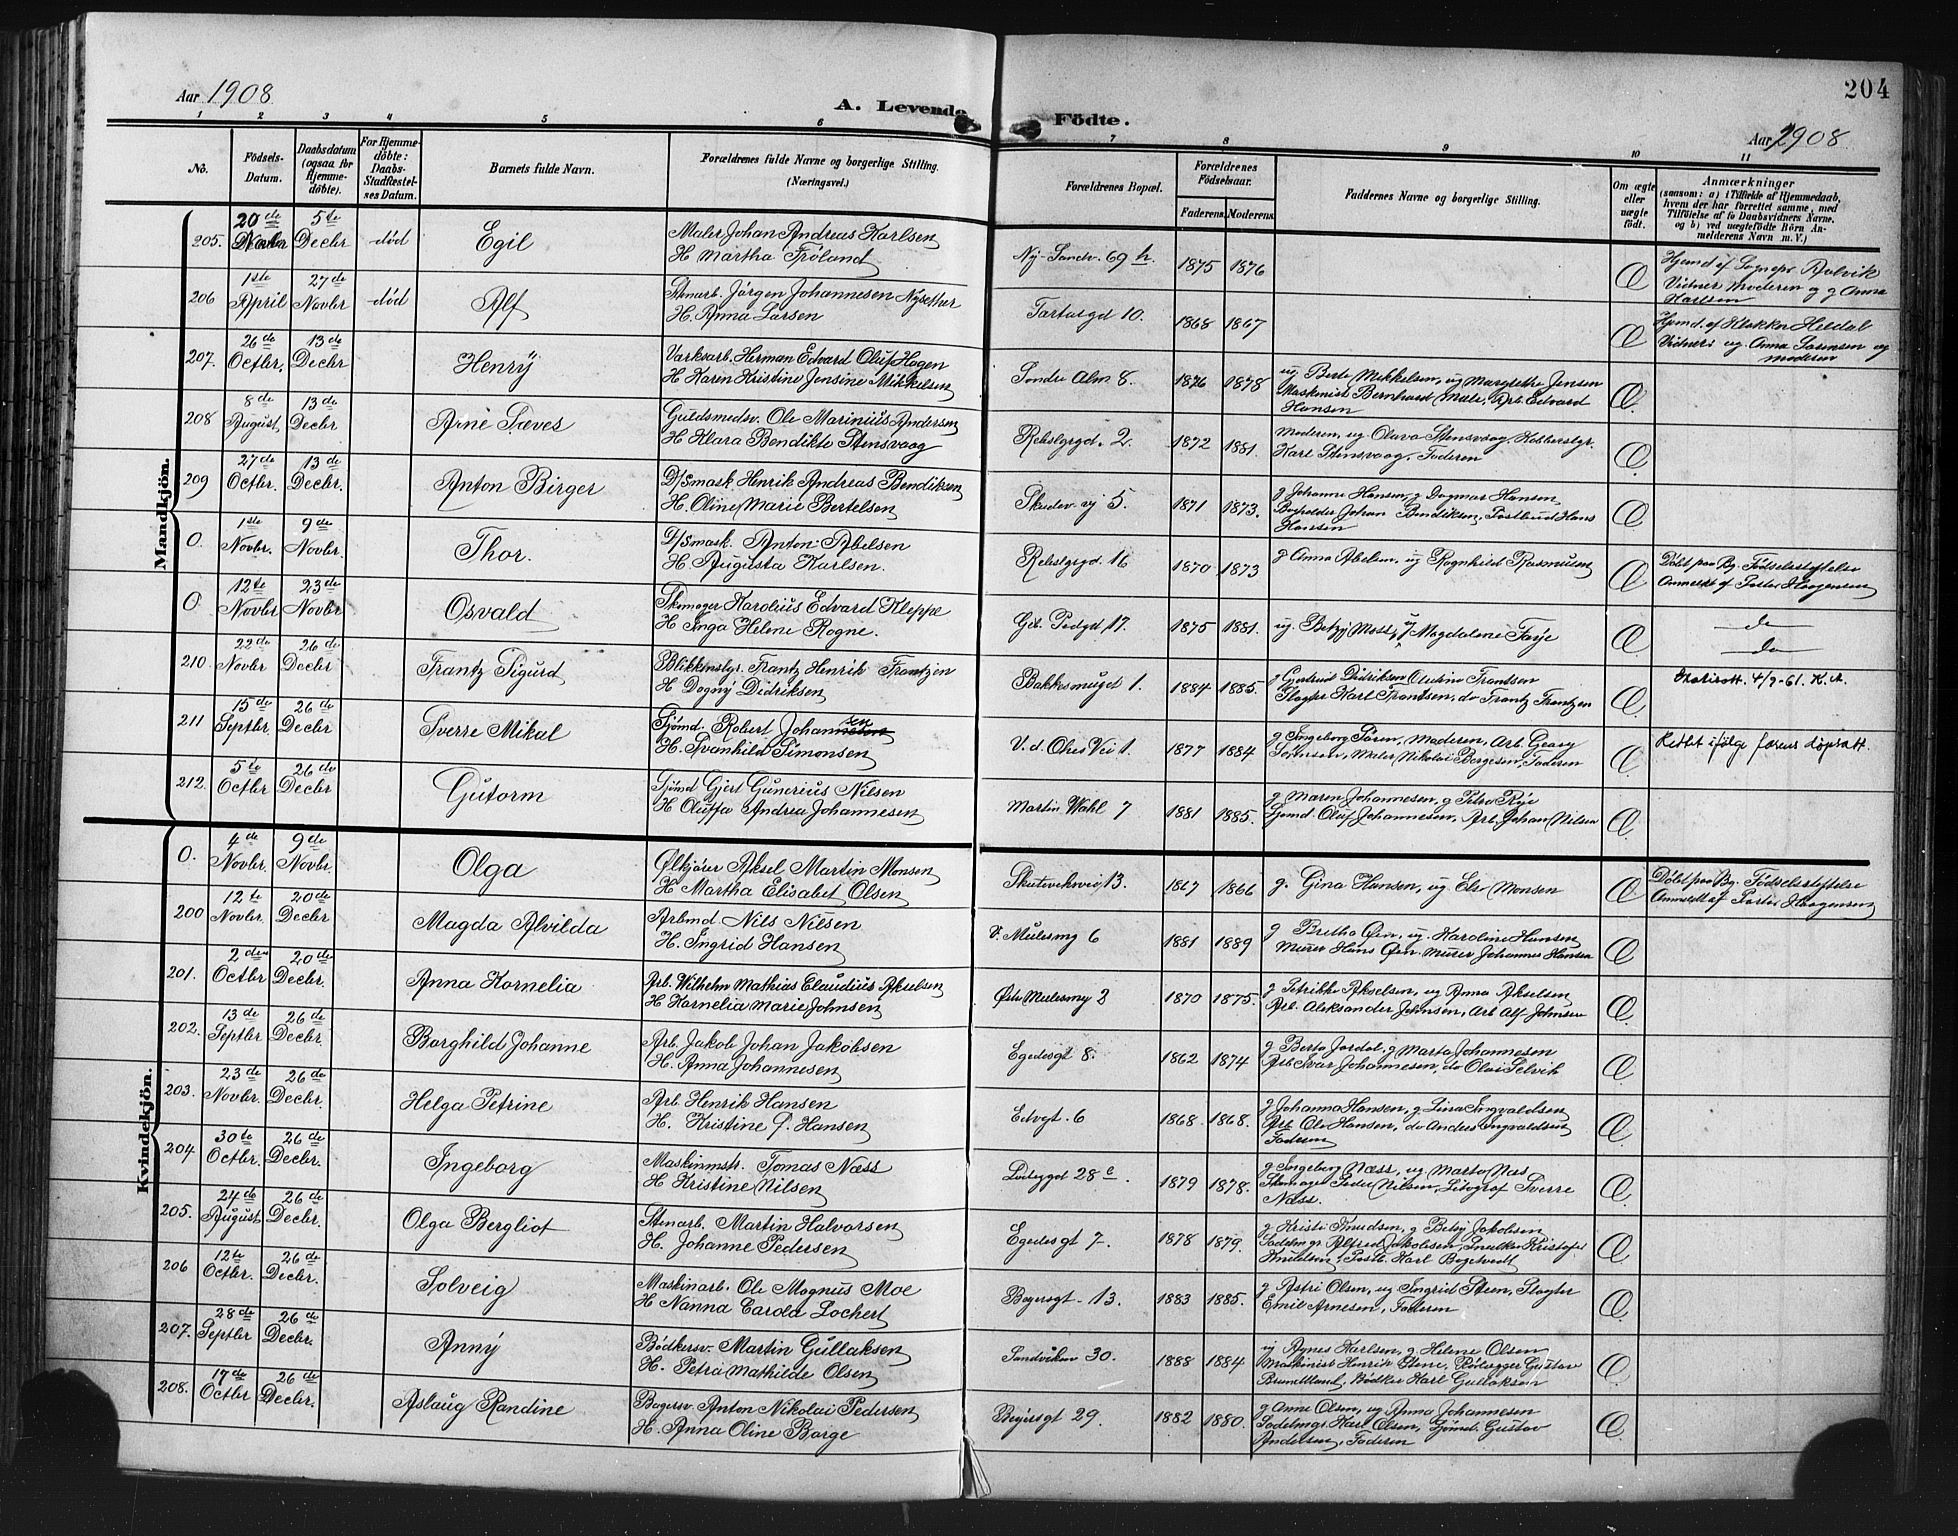 204
Aar 1908
A. Levende Födte.
Aar 1908
1 2 3 4 5 6 7 8 9 10 11
No.
Födsels-
Datum.
Daabsdatum
(ogsaa for
Hjemme-
döbte).
For Hjemme-
döbte:
Daabs-
Stadfæstel-
ses Datum.
Barnets fulde Navn.
Forældrenes fulde Navne og borgerlige Stilling.
(Næringsvei.)
Forældrenes Bopæl.
Forældrenes
Födselsaar.
Faderens. Moderens.
Faddernes Navne og borgerlige Stilling.
Om ægte
eller
uægte
födt.
Anmærkninger
(saasom: a) i Tilfælde af Hjemmedaab,
hvem der har forrettet samme, med
Tilföielse af to Daabsvidners Navne,
og b) ved uægtefödte Börn An-
melderens Navn m. V.)
Mandkjön.
205. 20de Novbr 5te Decbr død Egil Maler Johan Andreas Karlsen
H Martha Fröland Ny-Sandv. 69 h. 1875 1876 Æ Hjemd af Sognepr Rolvik
Vidner Moderen og g Anna
Karlsen
206 1ste April 27de Novbr død Alf Stenarb. Jörgen Johannesen Nysether
H. Anna Larsen Tartargd 10. 1868 1867 Æ Hjemd. af Klokker Heldal
Vidner: ug. Anna Sørensen og
Moderen
207. 26de Octbr. 13de Decbr Henry Varksarb. Herman Edvard Oluf Hagen
H Karen Kristine Jensine Mikkelsen Søndre Alm 8. 1876 1878 ug Berte Mikkelsen, ug Margrethe Jensen
Maskinist Bernhard Arb. Edvard
Hansen Æ
208 8de August 13de Decbr Arne Sæves Guldsmedsv. Ole Marinius Andersen
H Klara Bendikte Stensvaag Rebslgrgd. 2. 1872 1881. Moderen, ug Olava Stensvaag, Kobberslgr.
Karl Stensvaag, Faderen Æ
209 27de Octbr. 13de Decbr. Anton Birger D/Smask Henrik Andreas Bendiksen
H. Oline Marie Bertelsen Skudev vj 5. 1871 1873. g Johanne Hansen, g Dagmar Hansen
Johan Bendiksen, Postbud Hans
Hansen Æ
0. 1ste Novbr. 9de Novbr. Thor. D/Smask Anton Abelsen
H Augusta Karlsen Rebslgrgd 16 1870 1873 g Anna Abelsen, ug Ragnhild Rasmusen Æ Döbt paa Bg. Fødselsstiftelse
Anmeldt af Portør Haagensen
0 12te Novbr 23de Novbr Osvald Skomager Karolius Edvard Kleppe
H Inga Helene Rogne. Git. Pedgd 17. 1875 1881. ug. Betzy Moss, ug Magdalene Æ do
do
210. 22de Novbr 26de Decbr Frantz Sigurd Blikkenslgr. Frantz Henrik Frantzen
H Dagny Didriksen Bakkesmuget 1. 1884 1885. g Gjertrud Didriksen Frantsen
Slagter Karl Frantsen, do Frantz Frantzen Æ 4/9-61. K.A.
211 15de Septbr. 26de Decbr Sverre Mikal Sjømd. Robert Johannesen
H. Svanhild Simonsen V. d. Ohes Vei 1. 1877 1884 g Ingeborg Moderen, Arb. Georg
Sørensen, Maler Nikolai Borgesen, Faderen Æ Rettet ifølge farens dåpsatt.
212. 5te Octbr 26de Decbr Gutorm Sjømd Gjert Gunerius Nilsen
H Oluffa Andrea Johannesen Martin Wahl 7 1881 1885. g Maren Johannesen, g Petra Rye
Sjømd Oluf Johannesen, Arb. Johan Nilsen Æ
Kvindekjön.
0. 4de Novbr 9de Novbr. Olga Ølkjører Aksel Martin Monsen
H. Martha Elisabet Olsen Skuteviksvei 13. 1867 1866 g. Gina Hansen, ug. Els Monsen Æ Döbt paa Bg. Fødselsstiftelse
Anmeldt af Portør Haagensen
200 12te Novbr. 20de Decbr Magda Alvilda Arbmd Nils Nilsen
H. Ingrid Hansen V. Mulesmg 6 1881 1889 g Bretha Øen, ug. Karoline Hansen
Murer Hans Øen, Murer Johannes Hansen Æ
201. 2den Octbr 20de Decbr. Anna Kornelia Arb. Wilhelm Mathias Claudius Akselsen
H Kornelia Marie Johnsen Østr Mulesmg 2 1870 1875. g Petrikke Akselsen, ug Anna Akselsen
Arb. Aleksander Johnsen, Arb Alf Johnsen Æ
202. 13de Septbr 26de Decbr. Borghild Johanne Arb. Jakob Johan Jakobsen
H. Anna Johannesen Egedesgt 8. 1862 1874 g Berta Jordal, g Marta Johannesen
Arb Ivar Johannesen, do Olai Selvik Æ
203. 23de Novbr. 26de Decbr. Helga Petrine Arb. Henrik Hansen
H. Kristine J. Hansen Edvgt. 6 1868 1868. g Johanna Hansen, g Lina Ingvaldsen
Arb. Ole Hansen, do Andres Ingvaldsen
Faderen Æ
204 30te Octbr. 26de Decbr. Ingeborg Maskinmstr. Tomas Næss
H Kristine Nilsen Ladeggd 28 c. 1879 1878. g Ingeborg Næss, ug Marta Næs
Skomager Peder Nilsen, Litograf Sverre
Næss. Æ
205. 24de August 26de Decbr. Olga Bergliot Stenarb. Martin Halvorsen
H. Johanne Pedersen Egedesgt 7. 1878 1879. g Kristi Knudsen, g Betsy Jakobsen
Sadelmgr. Alfred Jakobsen, Snedker Kristofer
Knudsen, Postb. Karl Bogetvedt Æ
206 12te Octbr. 26de Decbr. Solveig Maskinarb. Ole Magnus Moe
H Nanna Carola Lochert Bøyersgt. 13. 1883 1885. g Astri Olsen, ug Ingrid Steen, Slagter
Emil Arnesen, Faderen Æ
207. 28de Septbr 26de Decbr. Anny Bødkersv. Martin Gullaksen
H. Petra Mathilde Olsen Sandviken 30. 1888 1884 ug Agnes Karlsen, g Helene Olsen
Maskinist Henrik Gustav
Bødker Karl Gullaksen Æ
208. 17de Octbr 26de Decbr. Aslaug Randine Bagersv. Anton Nikolai Pedersen
H. Anna Oline Borge Bøyersgt 29. 1882 1880. g Anne Olsen, ug Anna Johannesen
Sadelmgr. Karl Olsen, Sjømd. Gustav
Andersen, Faderen Æ